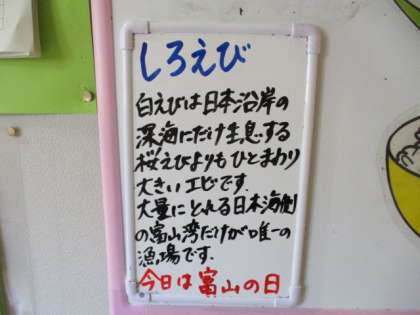 しろえび
白えびは日本沿岸の
深海にだけ生息する
桜えびよりもひとまわり
大きいエビです。
大量にとれる日本海側
の富山湾だけが唯一の
漁場です。
今日は富山の日